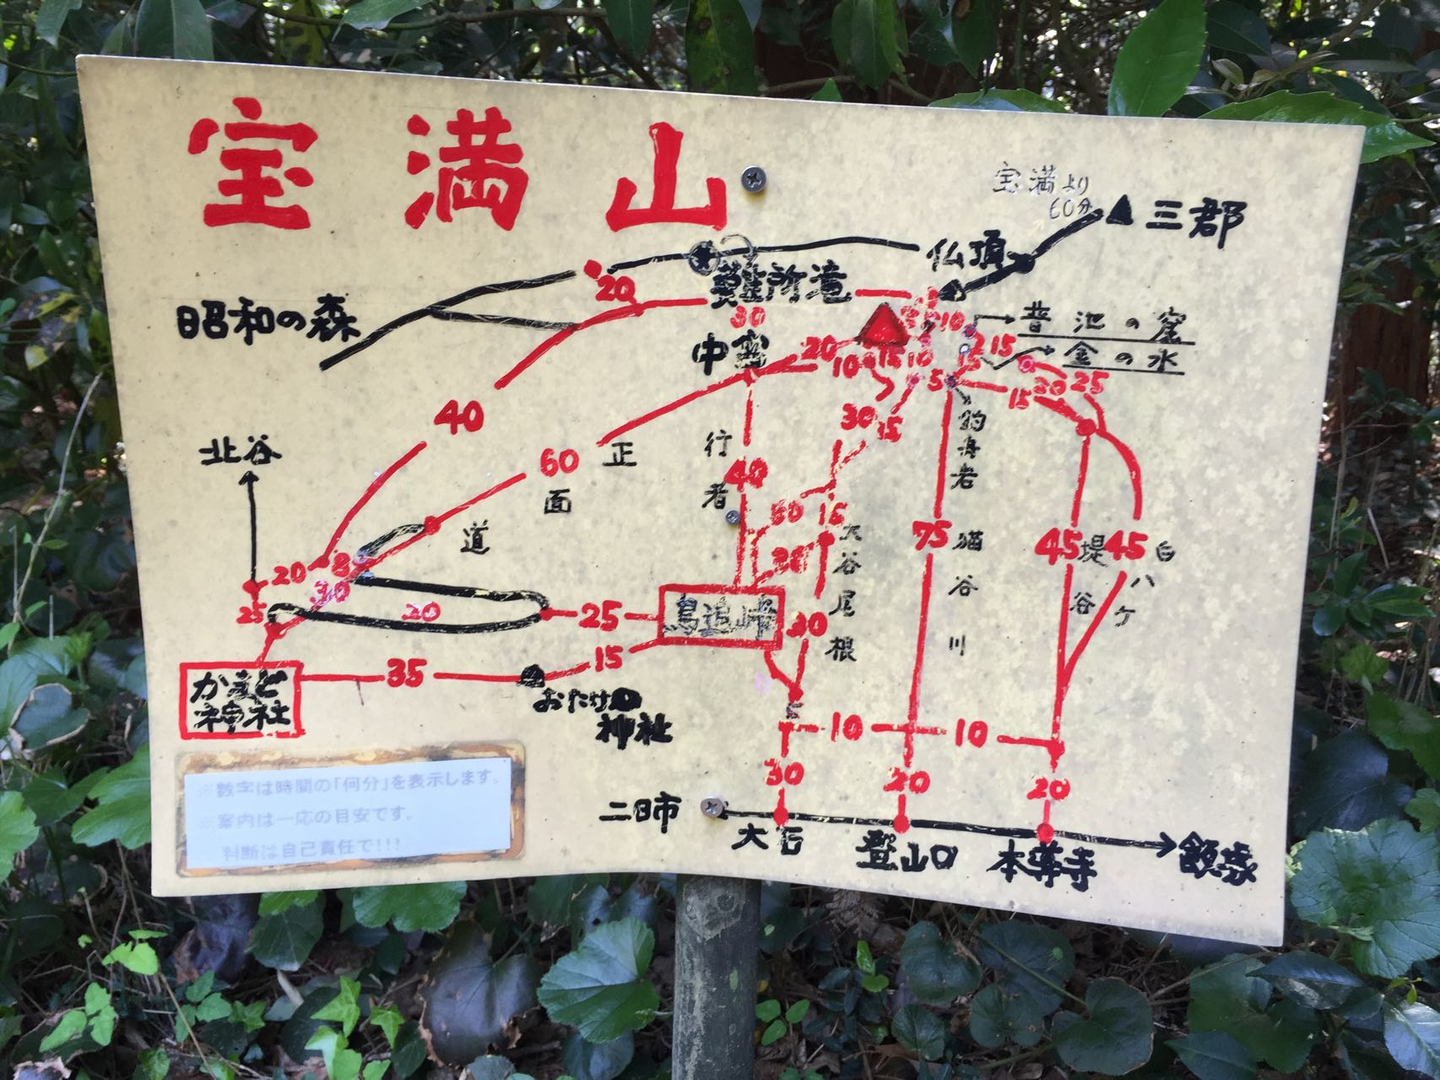 宝満山
宝満より
60分
三郡
仏頂
難所滝
昭和の森
20
30
10
普池の窟
金の水
15
中宮
20
10
15
10
15
5
15
20
25
40
30
15
釣舟岩
北谷
60
正面道
行者
40
50
15
大谷尾根
75
猫谷川
45
堤谷
45
白ハケ
20
8
30
30
25
20
25
鳥追峠
30
かまど
神社
35
15
おたけの
神社
10
10
30
20
20
※数字は時間の「何分」を表示します。
※案内は一応の目安です。
判断は自己責任で!!!
二日市
大石
登山口
本導寺
飯塚